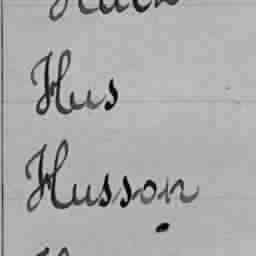 Hus
Husson